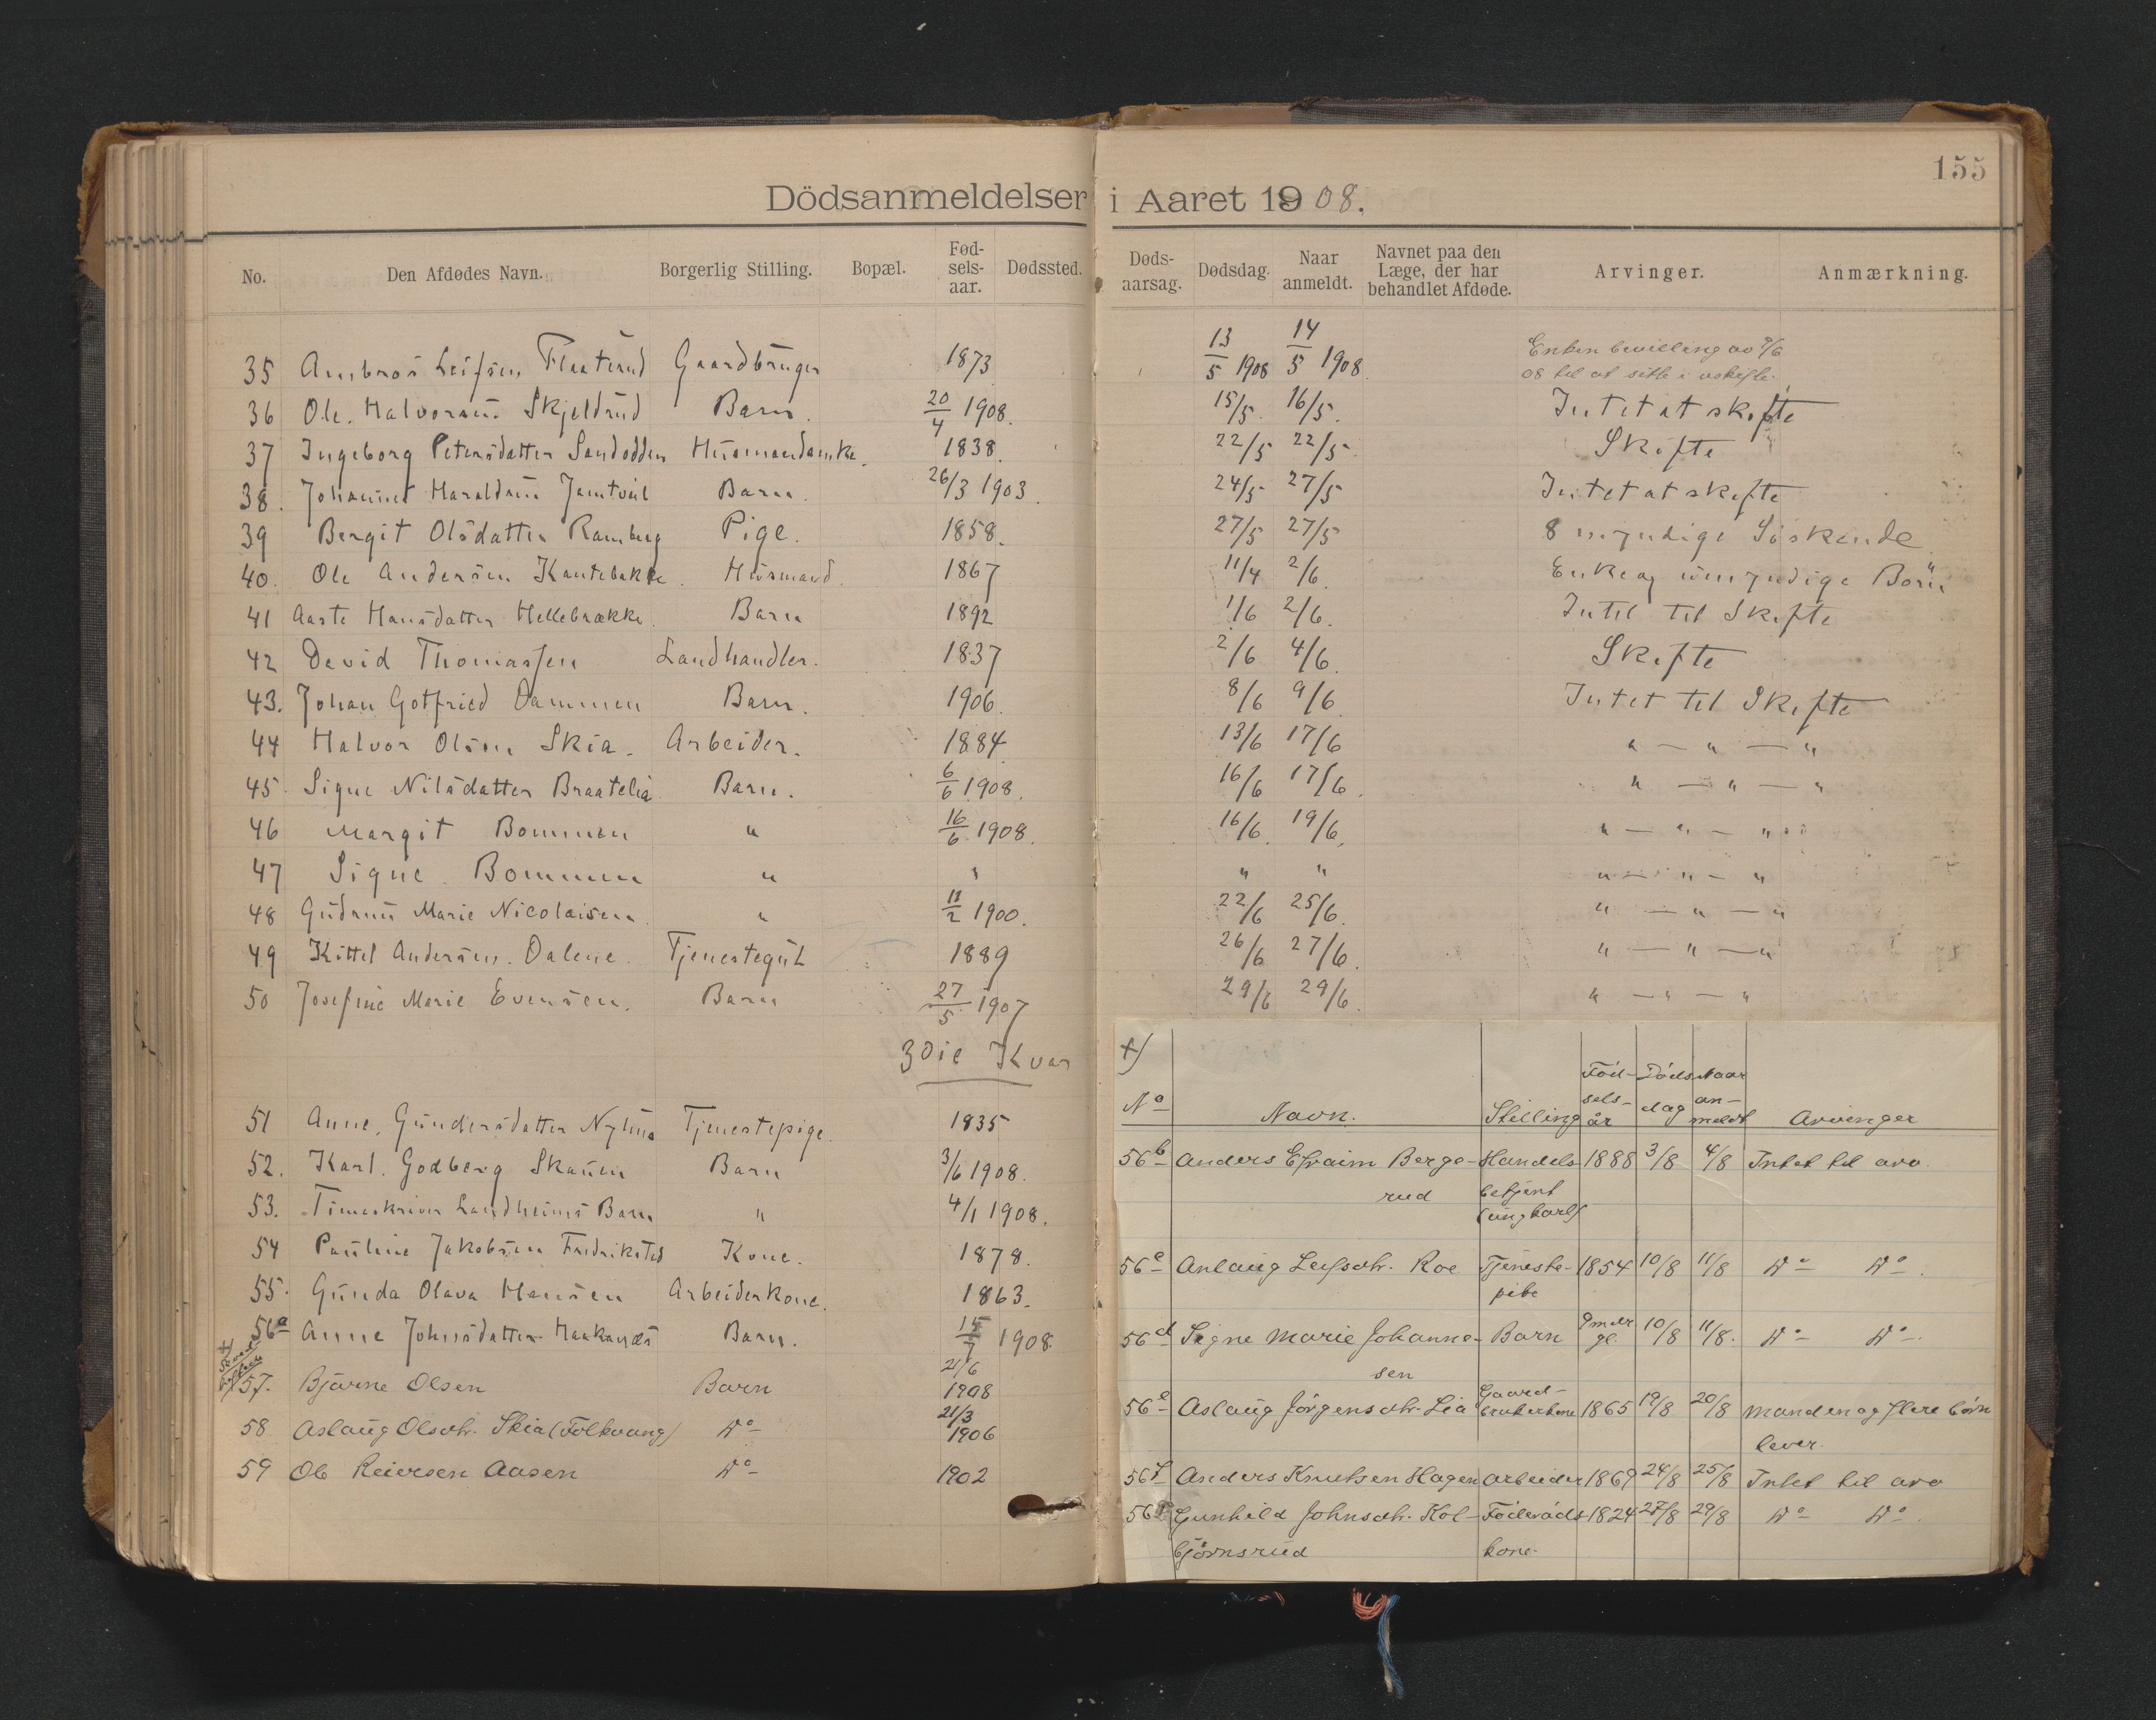 155
Dödsanmeldelser i Aaret 1908.
No. Den Afdødes Navn. Borgerlig Stilling. Bopæl. Fød-sels-aar. Dødssted. Døds-aarsag. Dødsdag. Naar anmeldt. Navnet paa den Læge, der har behandlet Afdøde. Arvinger. Anmærkning.
35 Ambros Leifsen Flaterud Gaardbruger 1873 13/5 1908 14/5 1908 Enken bevilling av 9/6
08 til at sitte i uskifte.
36 Ole Halvorsen Skjeldrud Barn. 20/4 1908. 15/5. 16/5. Intet at skifte
37 Ingeborg Petersdatter Sandodden Husmandsenke. 1838. 22/5 22/5. Skifte
38. Johannes Haraldsen Jamtveit Barn. 26/3 1903. 24/5 27/5 Intet at skifte
39 Bergit Olsdatter Ramberg Pige. 1858. 27/5 27/5 8 myndige Söskende
40. Ole Andersen Kantebakke. Husmand. 1867 11/4 2/6. Enke og umyndige Börn
41 Aaste Hansdatter Hellebrække. Barn 1892 1/6 2/6. Intet til Skifte
42 David Thomassen Landhandler. 1837 2/6 4/6. Skifte
43. Johan Gotfried Dammen Barn. 1906. 8/6 9/6 Intet til Skifte
44 Halvor Olsen Skia. Arbeider. 1884. 13/6 17/6 " — " — "
45. Signe Nilsdatter Braatelia Barn. 6/6 1908. 16/6 17/6. " — " — "
46 Margit Bommen " 16/6 1908. 16/6. 19/6. " — " — "
47 Signe Bommen " " " " " — " — "
48 Gudrun Marie Nicolaisen. " 11/2 1900. 22/6 25/6. " — " — "
49 Kittel Andersen Dalene. Tjenestegut 1889 26/6 27/6. " — " — "
50 Josefine Marie Evensen. Barn 27/5 1907 29/6 29/6. " — " — "
3die Kvar
51 Anne Gundersdatter Nyhus Tjenestepige. 1835
52. Karl Godberg Skauen Barn 3/6 1908.
53. Timeskriver Landheims Barn " 4/1 1908.
54 Pauline Jakobsen Fredriksted Kone. 1878.
55. Gunda Olava Hansen Arbeiderkone. 1863.
56a Anne Johnsdatter Haakanæs Barn. 15/7 1908.
57. Bjarne Olsen Barn 21/6 1908
58 Aslaug Olsdtr. Skia (Folkvang) Do 21/3 1906
59 Ole Reiersen Aasen Do 1902
+)
No Navn. Stilling Föd-sels-år Döds-dag Naar an-meldt Arvinger
56b Anders Efraim Berge- Handels- 1888 3/8 4/8 Intet til arv.
rud betjent
(ungkarl)
56c Anlaug Leifsdtr. Roe Tjeneste- 1854 10/8 11/8 Do Do.
pike
56d Signe Marie Johanne- Barn 9 mdr gl. 10/8 11/8. Do Do.
sen
56e Aslaug Jörgensdtr. Lia Gaard-brukerkone 1865 19/8 20/8 Manden og flere börn
lever.
56f Anders Knutsen Hagen Arbeider 1869 24/8 25/8 Intet til arv
56g Gunhild Johnsdtr. Kol- Föderåds- 1824 27/8 29/8 Do Do.
björnsrud kone.